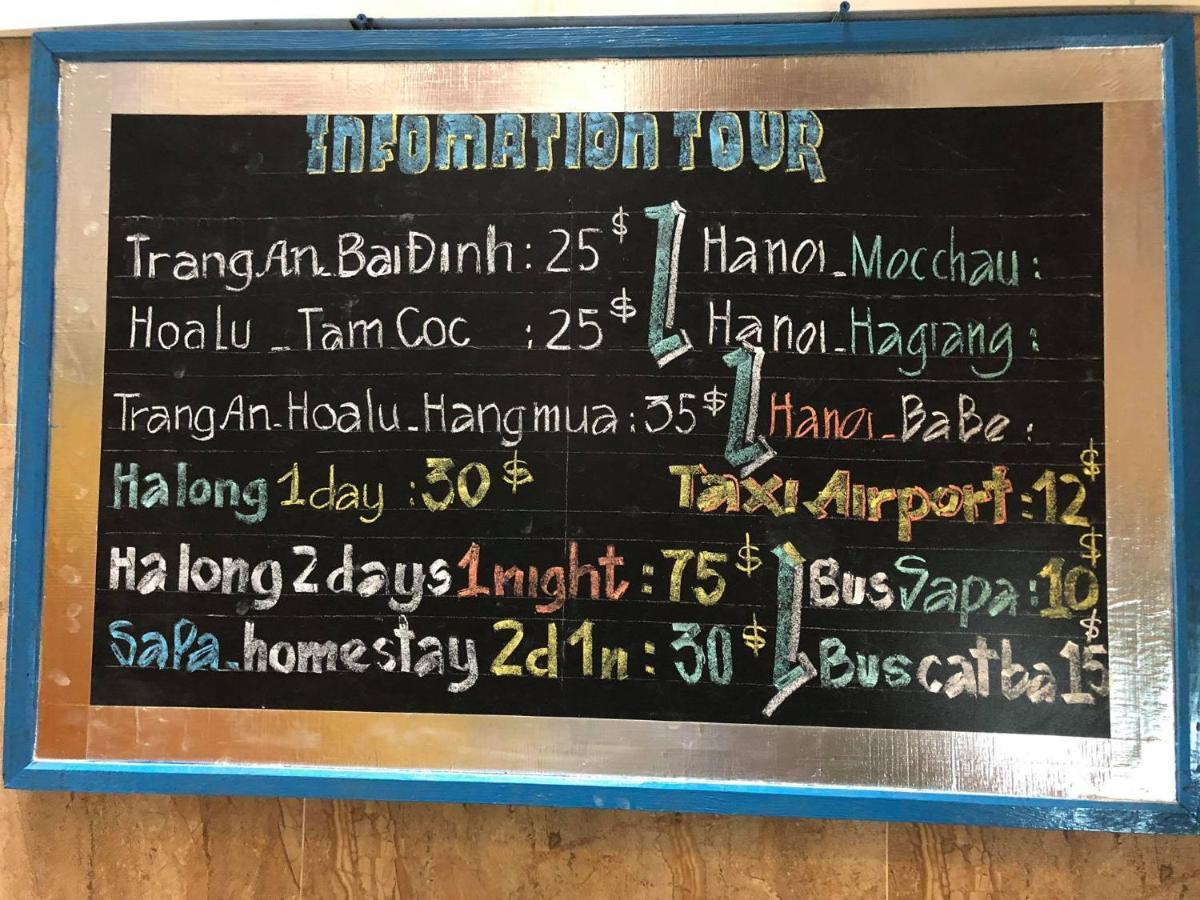 INFOMATION TOUR
Trang An_Bai Đinh : 25$ Hanoi_Mocchau :
Hoa Lu _ Tam Coc : 25$ Hanoi_Hagiang :
Trang An_Hoalu_Hangmua : 35$ Hanoi_BaBe :
Halong 1day : 30$ Taxi Airport : 12$
Halong 2 days 1 night : 75$ Bus Sapa : 10$
SaPa_homestay 2d1n : 30$ Bus catba 15$